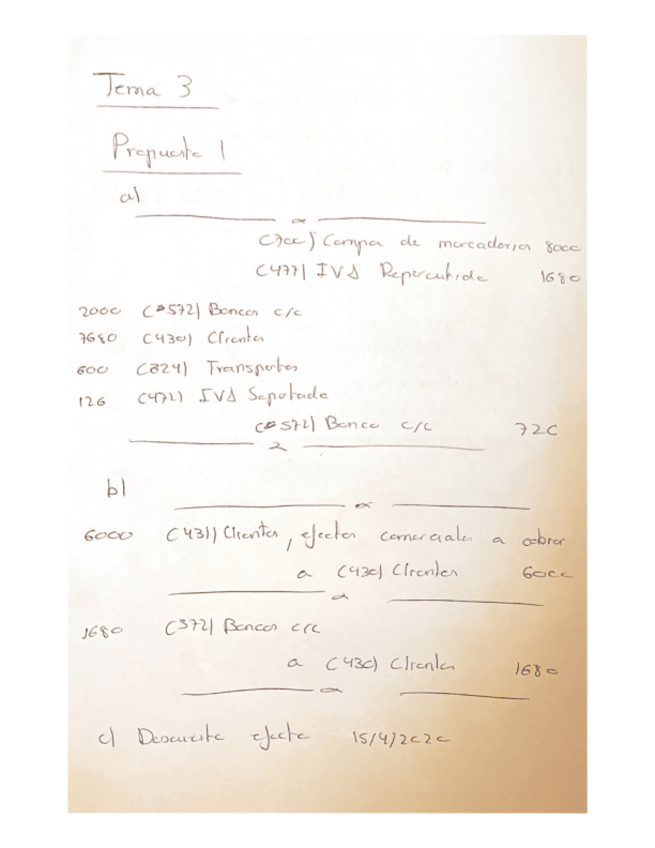 Tema 3
Propuesta 1
a)
(700) Compra de mercaderías 8000
(477) IVA Repercutido 1680
2000 (572) Bancos c/c
7680 (430) Clientes
600 (624) Transportes
126 (472) IVA Soportado
(572) Banco c/c 720
b)
6000 (431) Clientes, efectos comerciales a cobrar
a (430) Clientes 6000
1680 (572) Bancos c/c
a (430) Clientes 1680
c) Descuento efecto 15/4/2020